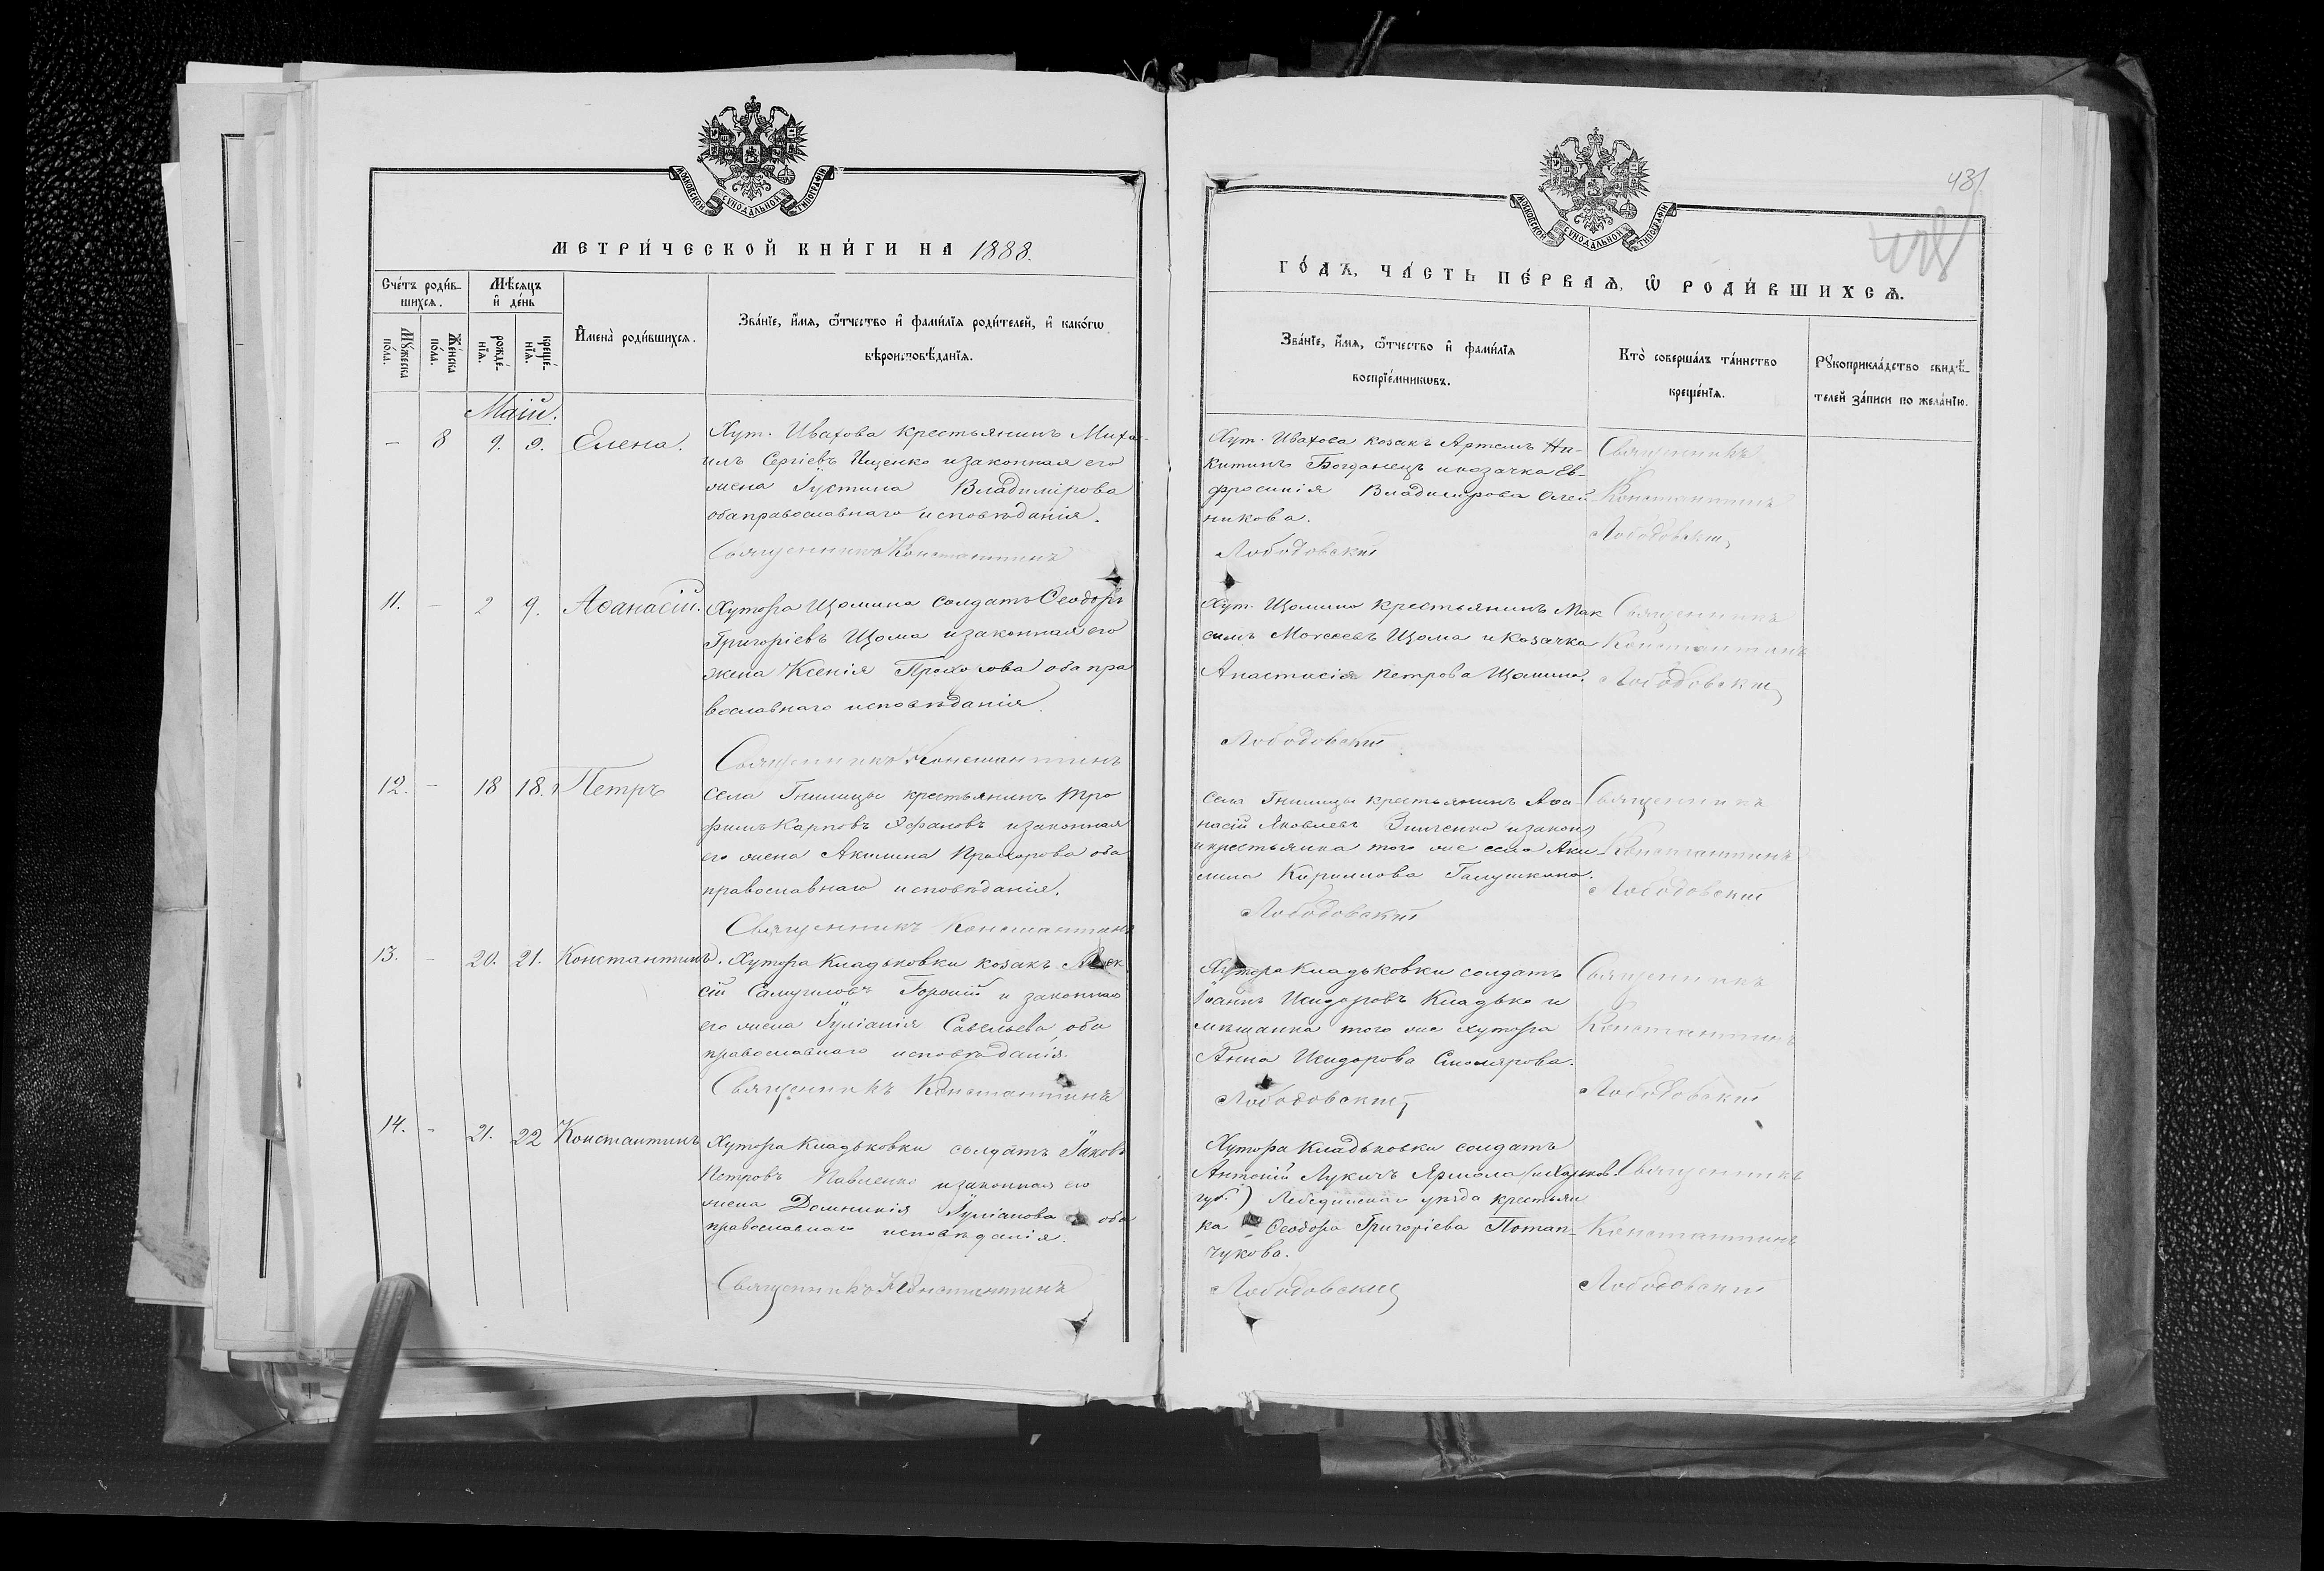 МОСКОВСКОЙ СУНОДАЛЬНОЙ ТИПОГРАФІИ
МЕТРИ́ЧЕСКОЙ КНИ́ГИ НА 1888.
Сче́тъ роди́в-
шихсѧ.
Мѣ́сѧцъ
и҆ де́нь
Мꙋ́жеска
по́ла.
Же́нска
по́ла.
рожде́-
нїѧ.
креще́-
нїѧ.
И҆мена̀ роди́вшихсѧ.
Зва́нїе, и҆́мѧ, ѻ҆́тчество и҆ фами́лїѧ роди́телей, и҆ како́гѡ
вѣроисповѣ́данїѧ.
Маій.
— 8 9. 9. Елена.
Хут. Ивахова крестьянинъ Миха-
илъ Сергіевъ Ищенко и законная его
жена Іустина Владимірова
оба православнаго исповѣданія.
Священникъ Константинъ
11. — 2 9. Аѳанасій.
Хутора Щомина солдатъ Ѳеодоръ
Григоріевъ Щома и законная его
жена Ксенія Прохорова оба пра
вославнаго исповѣданія.
Священникъ Константинъ
12. — 18 18. Петръ
Села Гнилицы крестьянинъ Тро
фимъ Карповъ и законная
его жена Акилина Прохорова оба
православнаго исповѣданія.
Священникъ Константинъ
13. — 20. 21. Константинъ.
Хутора Кладьковки козакъ
сій Самуиловъ и законная
его жена Іуліанія Савельева, оба
православнаго исповѣданія.
Священникъ Константинъ
14. — 21. 22 Константинъ
Хутора Кладьковки солдатъ Іаковъ
Петровъ Павленко и законная его
жена Домникія Іуліанова оба
православнаго исповѣданія.
Священникъ Константинъ
431
МОСКОВСКОЙ СУНОДАЛЬНОЙ ТИПОГРАФІИ
ГО́ДЪ, ЧА́СТЬ ПЕ́РВАѦ, Ѡ҆ РОДИ́ВШИХСѦ.
Зва́нїе, и҆́мѧ, ѻ҆́тчество и҆ фами́лїѧ
воспрїе́мникѡвъ.
Кто̀ соверша́лъ та́инство
креще́нїѧ.
Рꙋкоприкла́дство свидѣ́-
телей за́писи по жела́нїю.
Хут. Ивахова козакъ Артемъ Ни-
китинъ Богданецъ и козачка Ев-
фросинія Владимірова Олей
никова.
Лободовскій
Священникъ
Константинъ
Лободовскій
Хут. Щомина крестьянинъ Мак
симъ Моѵсеевъ Щома и козачка
Анастасія Петрова Щомина.
Лободовскій
Священникъ
Константинъ
Лободовскій
Села Гнилицы крестьянинъ Аѳа-
насій Яковлевъ Зинченко и закон
и крестьянка того же села Аки-
лина Кириллова Галушкина.
Лободовскій
Священникъ
Константинъ
Лободовскій
Хутора Кладьковки солдатъ
Іоаннъ Исидоровъ Кладько и
мѣщанка того же хутора
Анна Исидорова Столярова.
Лободовскій
Священникъ
Константинъ
Лободовскій
Хутора Кладьковки солдатъ
Антоній Лукичъ Ярмола (и Харьков.
губ.) Лебединскаго уѣзда крестьян
ка Ѳеодора Григоріева Потап-
чукова.
Лободовскій
Священникъ
Константинъ
Лободовскій